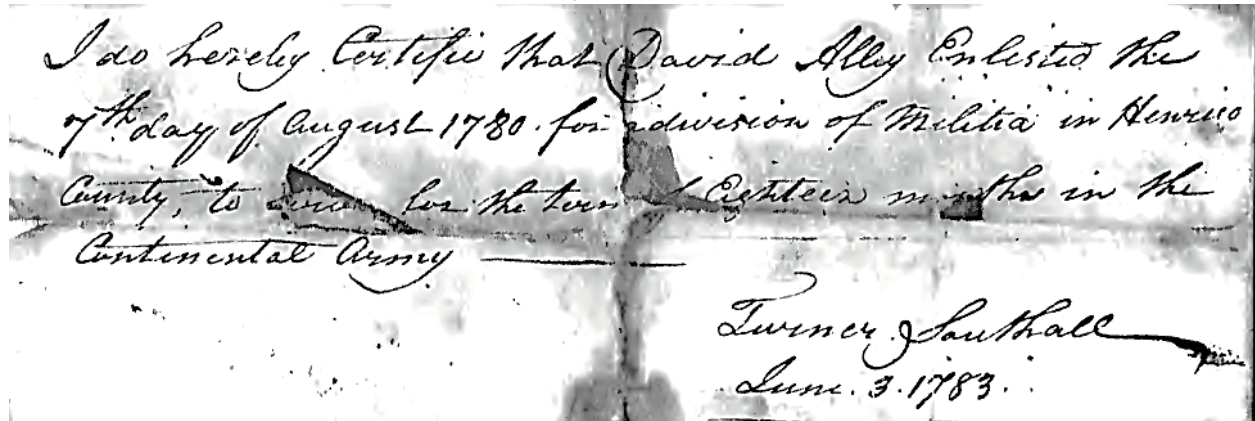 I do hereby Certifie that David Alley Enlisted the
7th day of August 1780. for a division of Militia in Henrico
County, to serve for the term of Eighteen months in the
Continental Army
Turner Southall
June. 3. 1783.